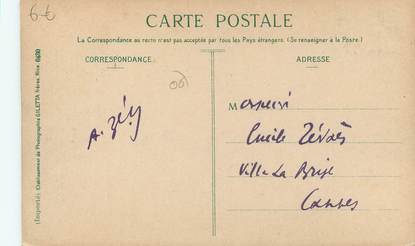 6 €
CARTE POSTALE
La Correspondance au recto n'est pas acceptée par tous les Pays étrangers. (Se renseigner à la Poste.)
CORRESPONDANCE
ADRESSE
Etablissement de Photographie GILETTA frères, Nice
(Importé)
Monsieur
Zévaès
Villa La Brise
Cannes